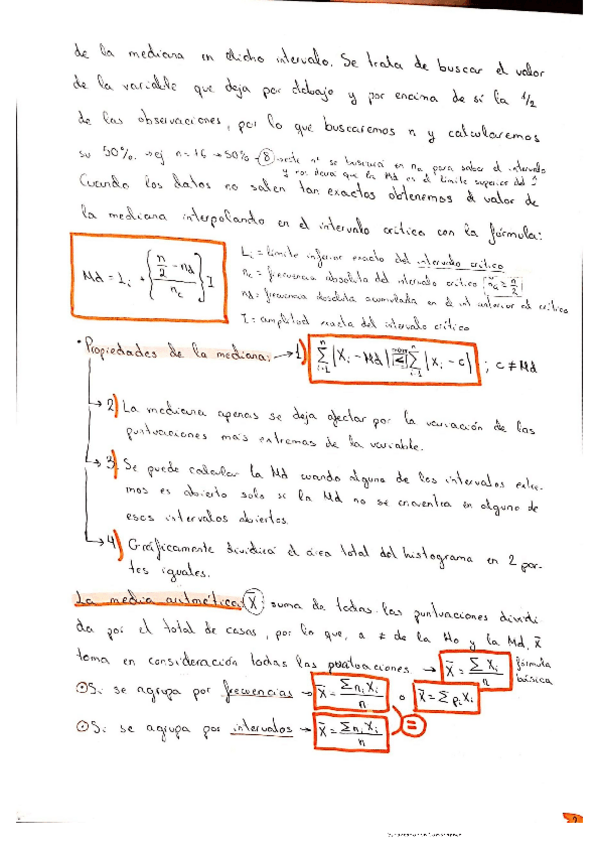 de la mediana en dicho intervalo. Se trata de buscar el valor
de la variable que deja por debajo y por encima de sí la 1/2
de las observaciones, por lo que buscaremos n y calcularemos
su 50%. → ej n=16 → 50% → 8 → este nº se buscará en na para saber el intervalo
y nos dirá que la Md es el límite superior del
Cuando los datos no salen tan exactos obtenemos el valor de
la mediana interpolando en el intervalo crítico con la fórmula:
Md = Li + { (n/2 - nd) / nc } I
Li = límite inferior exacto del intervalo crítico
nc = frecuencia absoluta del intervalo crítico [na ≥ n/2]
nd = frecuencia absoluta acumulada en el int anterior al crítico
I = amplitud exacta del intervalo crítico
• Propiedades de la mediana: → 1) Σ |Xi - Md| ≤ Σ |Xi - c| ; c ≠ Md
→ 2) La mediana apenas se deja afectar por la variación de las
puntuaciones más extremas de la variable.
→ 3) Se puede calcular la Md cuando alguno de los intervalos extre-
mos es abierto solo si la Md no se encuentra en alguno de
esos intervalos abiertos.
→ 4) Gráficamente dividirá el área total del histograma en 2 par-
tes iguales.
La media aritmética: X̄: suma de todas las puntuaciones dividi
da por el total de casos, por lo que, a ≠ de la Mo y la Md, X̄
toma en consideración todas las puntuaciones → X̄ = Σ Xi / n fórmula básica
⊙ Si se agrupa por frecuencias → X̄ = Σ ni Xi / n o X̄ = Σ pi Xi
⊙ Si se agrupa por intervalos → X̄ = Σ ni Xi / n =